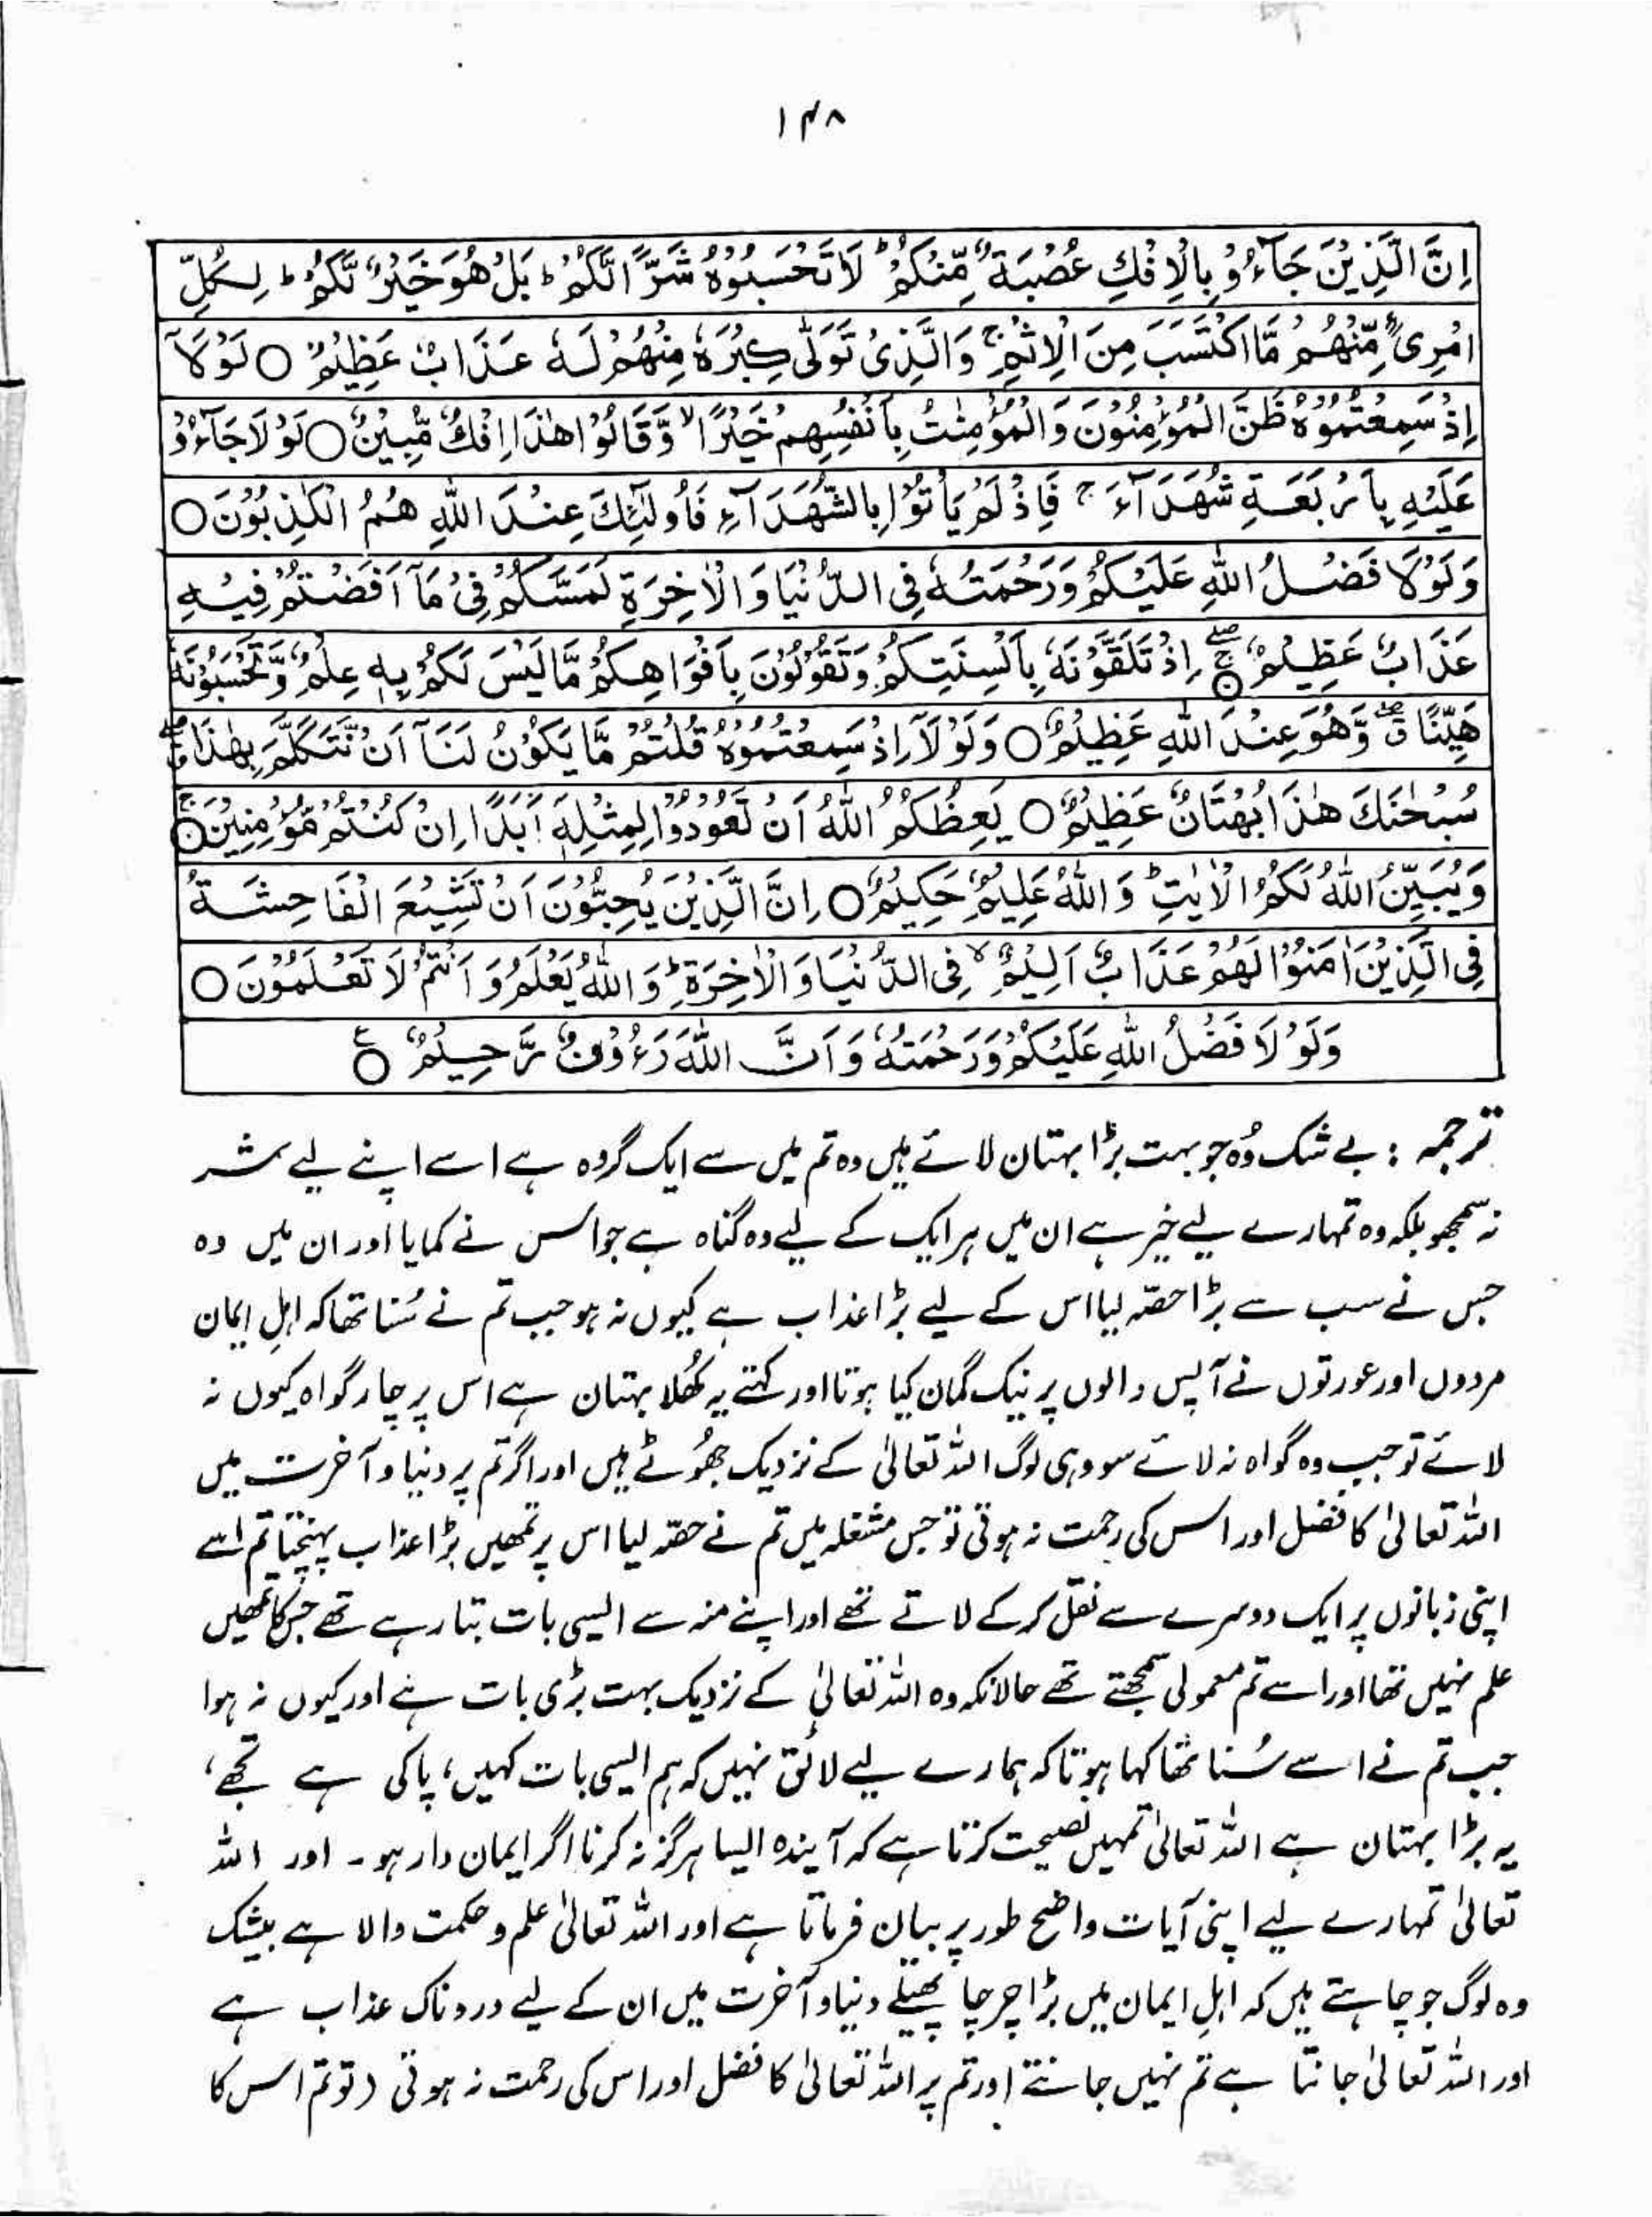 ۱۴۸
اِنَّ الَّذِیْنَ جَآءُوْ بِالْاِفْكِ عُصْبَةٌ مِّنْكُمْ ؕ لَا تَحْسَبُوْهُ شَرًّا لَّكُمْ ؕ بَلْ هُوَ خَیْرٌ لَّكُمْ ؕ لِكُلِّ
امْرِیٍٔ مِّنْهُمْ مَّا اكْتَسَبَ مِنَ الْاِثْمِ ۚ وَالَّذِیْ تَوَلّٰی كِبْرَهٗ مِنْهُمْ لَهٗ عَذَابٌ عَظِیْمٌ ○ لَوْ لَآ
اِذْ سَمِعْتُمُوْهُ ظَنَّ الْمُؤْمِنُوْنَ وَالْمُؤْمِنٰتُ بِاَنْفُسِهِمْ خَیْرًا ۙ وَّقَالُوْا هٰذَا اِفْكٌ مُّبِیْنٌ ○ لَوْ لَا جَآءُوْ
عَلَیْهِ بِاَرْبَعَةِ شُهَدَآءَ ۚ فَاِذْ لَمْ یَاْتُوْا بِالشُّهَدَآءِ فَاُولٰٓئِكَ عِنْدَ اللّٰهِ هُمُ الْكٰذِبُوْنَ ○
وَلَوْ لَا فَضْلُ اللّٰهِ عَلَیْكُمْ وَرَحْمَتُهٗ فِی الدُّنْیَا وَالْاٰخِرَةِ لَمَسَّكُمْ فِیْ مَآ اَفَضْتُمْ فِیْهِ
عَذَابٌ عَظِیْمٌ ۚۖ○ اِذْ تَلَقَّوْنَهٗ بِاَلْسِنَتِكُمْ وَتَقُوْلُوْنَ بِاَفْوَاهِكُمْ مَّا لَیْسَ لَكُمْ بِهٖ عِلْمٌ وَّتَحْسَبُوْنَهٗ
هَیِّنًا ۖق وَّهُوَ عِنْدَ اللّٰهِ عَظِیْمٌ ○ وَلَوْ لَآ اِذْ سَمِعْتُمُوْهُ قُلْتُمْ مَّا یَكُوْنُ لَنَآ اَنْ نَّتَكَلَّمَ بِهٰذَا ۖق
سُبْحٰنَكَ هٰذَا بُهْتَانٌ عَظِیْمٌ ○ یَعِظُكُمُ اللّٰهُ اَنْ تَعُوْدُوْا لِمِثْلِهٖٓ اَبَدًا اِنْ كُنْتُمْ مُّؤْمِنِیْنَ ۚ○
وَیُبَیِّنُ اللّٰهُ لَكُمُ الْاٰیٰتِ ؕ وَاللّٰهُ عَلِیْمٌ حَكِیْمٌ ○ اِنَّ الَّذِیْنَ یُحِبُّوْنَ اَنْ تَشِیْعَ الْفَاحِشَةُ
فِی الَّذِیْنَ اٰمَنُوْا لَهُمْ عَذَابٌ اَلِیْمٌ ۙ فِی الدُّنْیَا وَالْاٰخِرَةِ ؕ وَاللّٰهُ یَعْلَمُ وَ اَنْتُمْ لَا تَعْلَمُوْنَ ○
وَلَوْ لَا فَضْلُ اللّٰهِ عَلَیْكُمْ وَرَحْمَتُهٗ وَ اَنَّ اللّٰهَ رَءُوْفٌ رَّحِیْمٌ ○ع
ترجمہ : بے شک وُہ جو بہت بڑا بہتان لائے ہیں وہ تم میں سے ایک گروہ ہے اسے اپنے لیے شر
نہ سمجھو بلکہ وہ تمہارے لیے خیر ہے ان میں ہر ایک کے لیے وہ گناہ ہے جو اس نے کمایا اور ان میں وہ
جس نے سب سے بڑا حصّہ لیا اس کے لیے بڑا عذاب ہے کیوں نہ ہو جب تم نے سُنا تھا کہ اہلِ ایمان
مردوں اور عورتوں نے آپس والوں پر نیک گمان کیا ہوتا اور کہتے یہ کُھلا بہتان ہے اس پر چار گواہ کیوں نہ
لائے تو جب وہ گواہ نہ لائے سو وہی لوگ اللہ تعالیٰ کے نزدیک جھُوٹے ہیں اور اگر تم پر دنیا و آخرت میں
اللہ تعالیٰ کا فضل اور اس کی رحمت نہ ہوتی تو جس مشغلہ میں تم نے حصّہ لیا اس پر تمھیں بڑا عذاب پہنچتا تم اسے
اپنی زبانوں پر ایک دوسرے سے نقل کر کے لاتے تھے اور اپنے منہ سے ایسی بات بتا رہے تھے جس کا تمھیں
علم نہیں تھا اور اسے تم معمولی سمجھتے تھے حالانکہ وہ اللہ تعالیٰ کے نزدیک بہت بڑی بات ہے اور کیوں نہ ہوا
جب تم نے اسے سُنا تھا کہا ہوتا کہ ہمارے لیے لائق نہیں کہ ہم ایسی بات کہیں، پاکی ہے تجھے،
یہ بڑا بہتان ہے اللہ تعالیٰ تمہیں نصیحت کرتا ہے کہ آیندہ ایسا ہرگز نہ کرنا اگر ایمان دار ہو۔ اور اللہ
تعالیٰ تمہارے لیے اپنی آیات واضح طور پر بیان فرماتا ہے اور اللہ تعالیٰ علم و حکمت والا ہے بیشک
وہ لوگ جو چاہتے ہیں کہ اہلِ ایمان میں بڑا چرچا پھیلے دنیا و آخرت میں ان کے لیے دردناک عذاب ہے
اور اللہ تعالیٰ جانتا ہے تم نہیں جانتے اور تم پر اللہ تعالیٰ کا فضل اور اس کی رحمت نہ ہوتی (تو تم اس کا